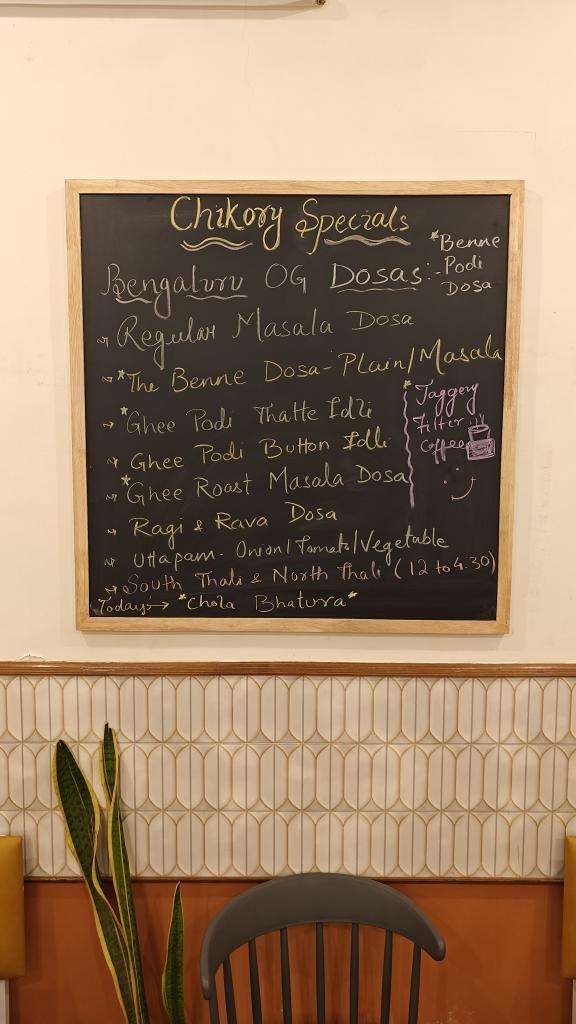 Chikory Specials
Bengaluru OG Dosas:-
*Benne
Podi
Dosa
→ Regular Masala Dosa
→ *The Benne Dosa - Plain/Masala
→ *Ghee Podi Thatte Idli
→ Ghee Podi Button Idli
→ *Ghee Roast Masala Dosa
→ Ragi & Rava Dosa
→ Uttapam - Onion/Tomato/Vegetable
→ South Thali & North Thali (12 to 4.30)
Today → *Chola Bhatura*
*Jaggery
Filter
Coffee